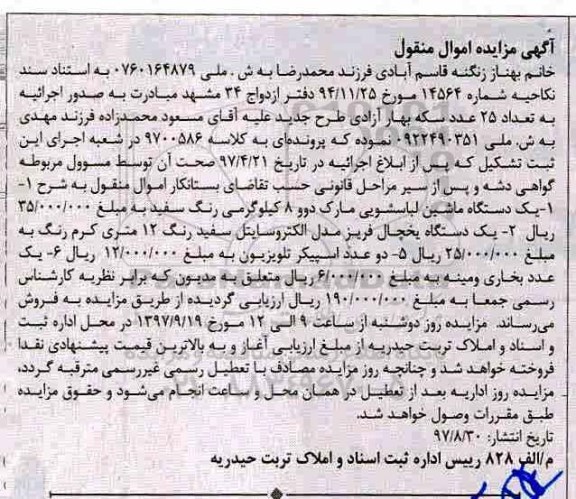 آگهی مزایده اموال منقول
خانم بهناز زنگنه قاسم آبادی فرزند محمدرضا به ش . ملی ۰۷۶۰۱۶۴۸۷۹ به استناد سند
نکاحیه شماره ۱۴۵۶۴ مورخ ۹۴/۱۱/۲۵ دفتر ازدواج ۳۴ مشهد مبادرت به صدور اجرائیه
به تعداد ۲۵ عدد سکه بهار آزادی طرح جدید علیه آقای مسعود محمدزاده فرزند مهدی
به ش. ملی ۰۹۲۲۴۹۰۳۵۱ نموده که پرونده‌ای به کلاسه ۹۷۰۰۵۸۶ در شعبه اجرای این
ثبت تشکیل که پس از ابلاغ اجرائیه در تاریخ ۹۷/۴/۲۱ صحت آن توسط مسوول مربوطه
گواهی دشه و پس از سیر مراحل قانونی حسب تقاضای بستانکار اموال منقول به شرح ۱-
۱-یک دستگاه ماشین لباسشویی مارک دوو ۸ کیلوگرمی رنگ سفید به مبلغ ۳۵/۰۰۰/۰۰۰
ریال ۲- یک دستگاه یخچال فریزر مدل الکتروسایتل سفید رنگ ۱۲ متری کرم رنگ به
مبلغ ۲۵/۰۰۰/۰۰۰ ریال ۵- دو عدد اسپیکر تلویزیون به مبلغ ۱۲/۰۰۰/۰۰۰ ریال ۶- یک
عدد بخاری ومینه به مبلغ ۶/۰۰۰/۰۰۰ ریال متعلق به مدیون که برابر نظریه کارشناس
رسمی جمعا به مبلغ ۱۹۰/۰۰۰/۰۰۰ ریال ارزیابی گردیده از طریق مزایده به فروش
می‌رساند. مزایده روز دوشنبه از ساعت ۹ الی ۱۲ مورخ ۱۳۹۷/۹/۱۹ در محل اداره ثبت
و اسناد و املاک تربت حیدریه از مبلغ ارزیابی آغاز و به بالاترین قیمت پیشنهادی نقدا
فروخته خواهد شد و چنانچه روز مزایده مصادف با تعطیل رسمی غیررسمی مترقبه گردد،
مزایده روز اداریه بعد از تعطیل در همان محل و ساعت انجام می‌شود و حقوق مزایده
طبق مقررات وصول خواهد شد.
تاریخ انتشار: ۹۷/۸/۳۰
م/الف ۸۲۸ رییس اداره ثبت اسناد و املاک تربت حیدریه